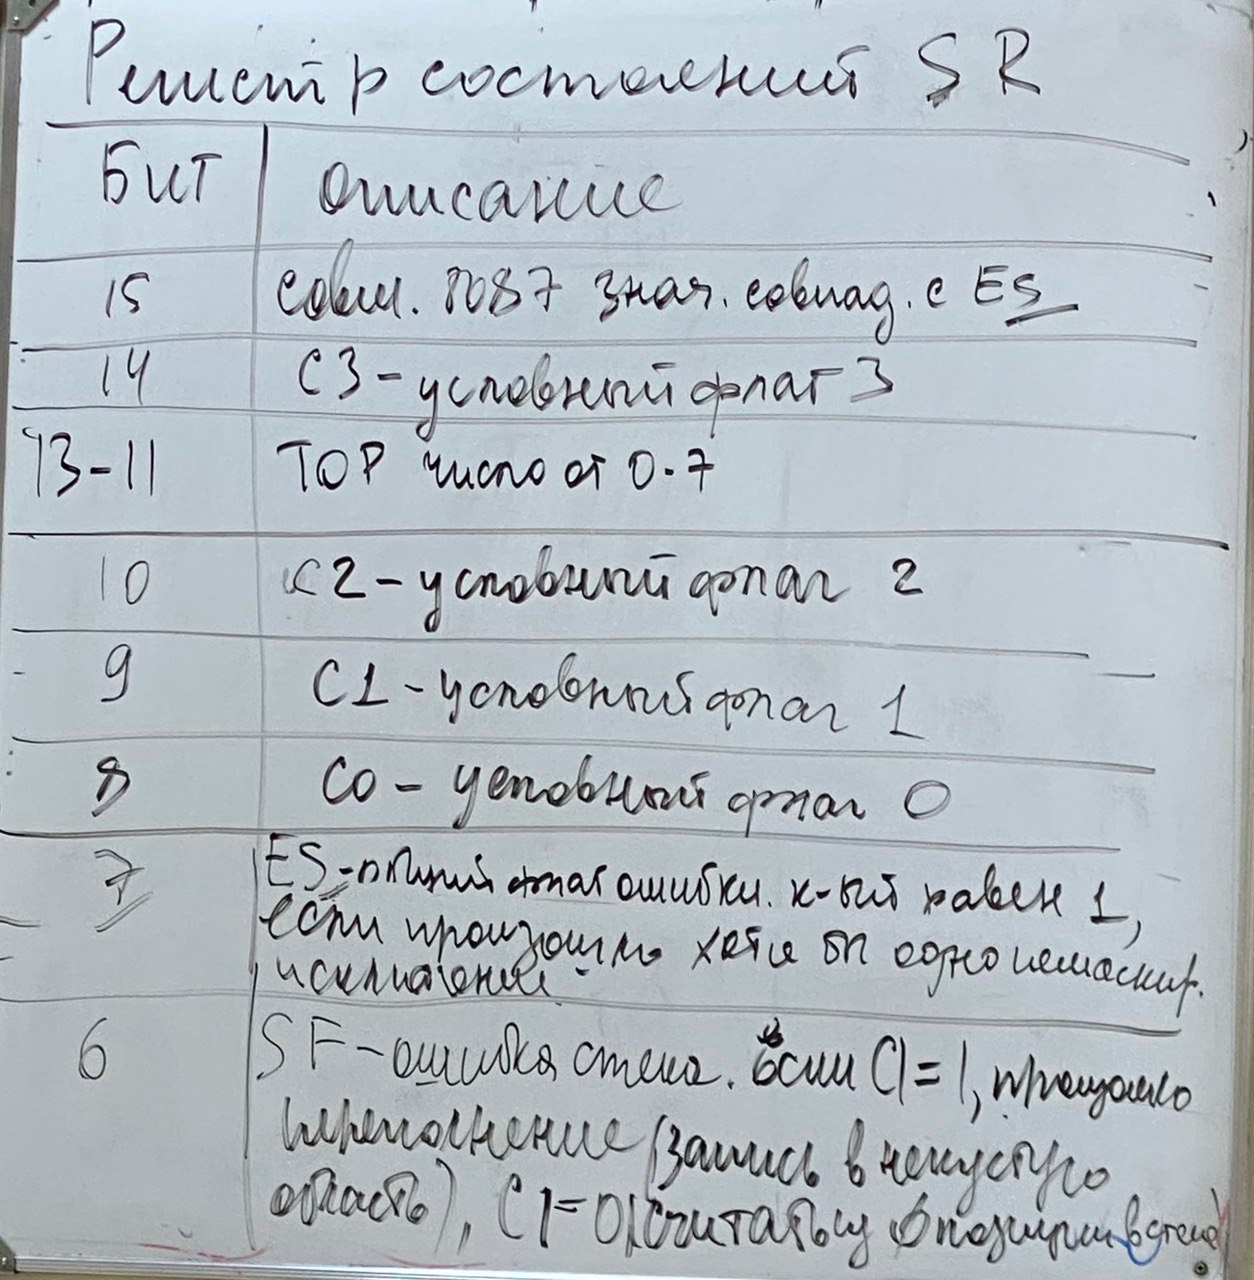 Регистр состояний SR
Бит описание
15 совм. 8087 знач. совпад. с ES
14 C3 - условный флаг 3
13-11 TOP число от 0-7
10 C2 - условный флаг 2
9 C1 - условный флаг 1
8 C0 - условный флаг 0
7 ES - общий флаг ошибки. к-ый равен 1,
если произошло хотя бы одно немаскир.
исключение.
6 SF - ошибка стека. Если C1=1, произошло
переполнение (запись в непустую
область), C1=0 (считать из позиции в стеке)